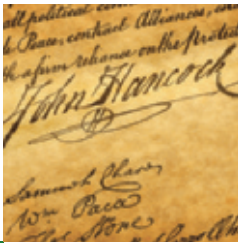 all political con
Peace, contract Alliances, esta
h a firm reliance on the Protect
John Hancock
Samuel Chase
Wm Paca
Thos Stone